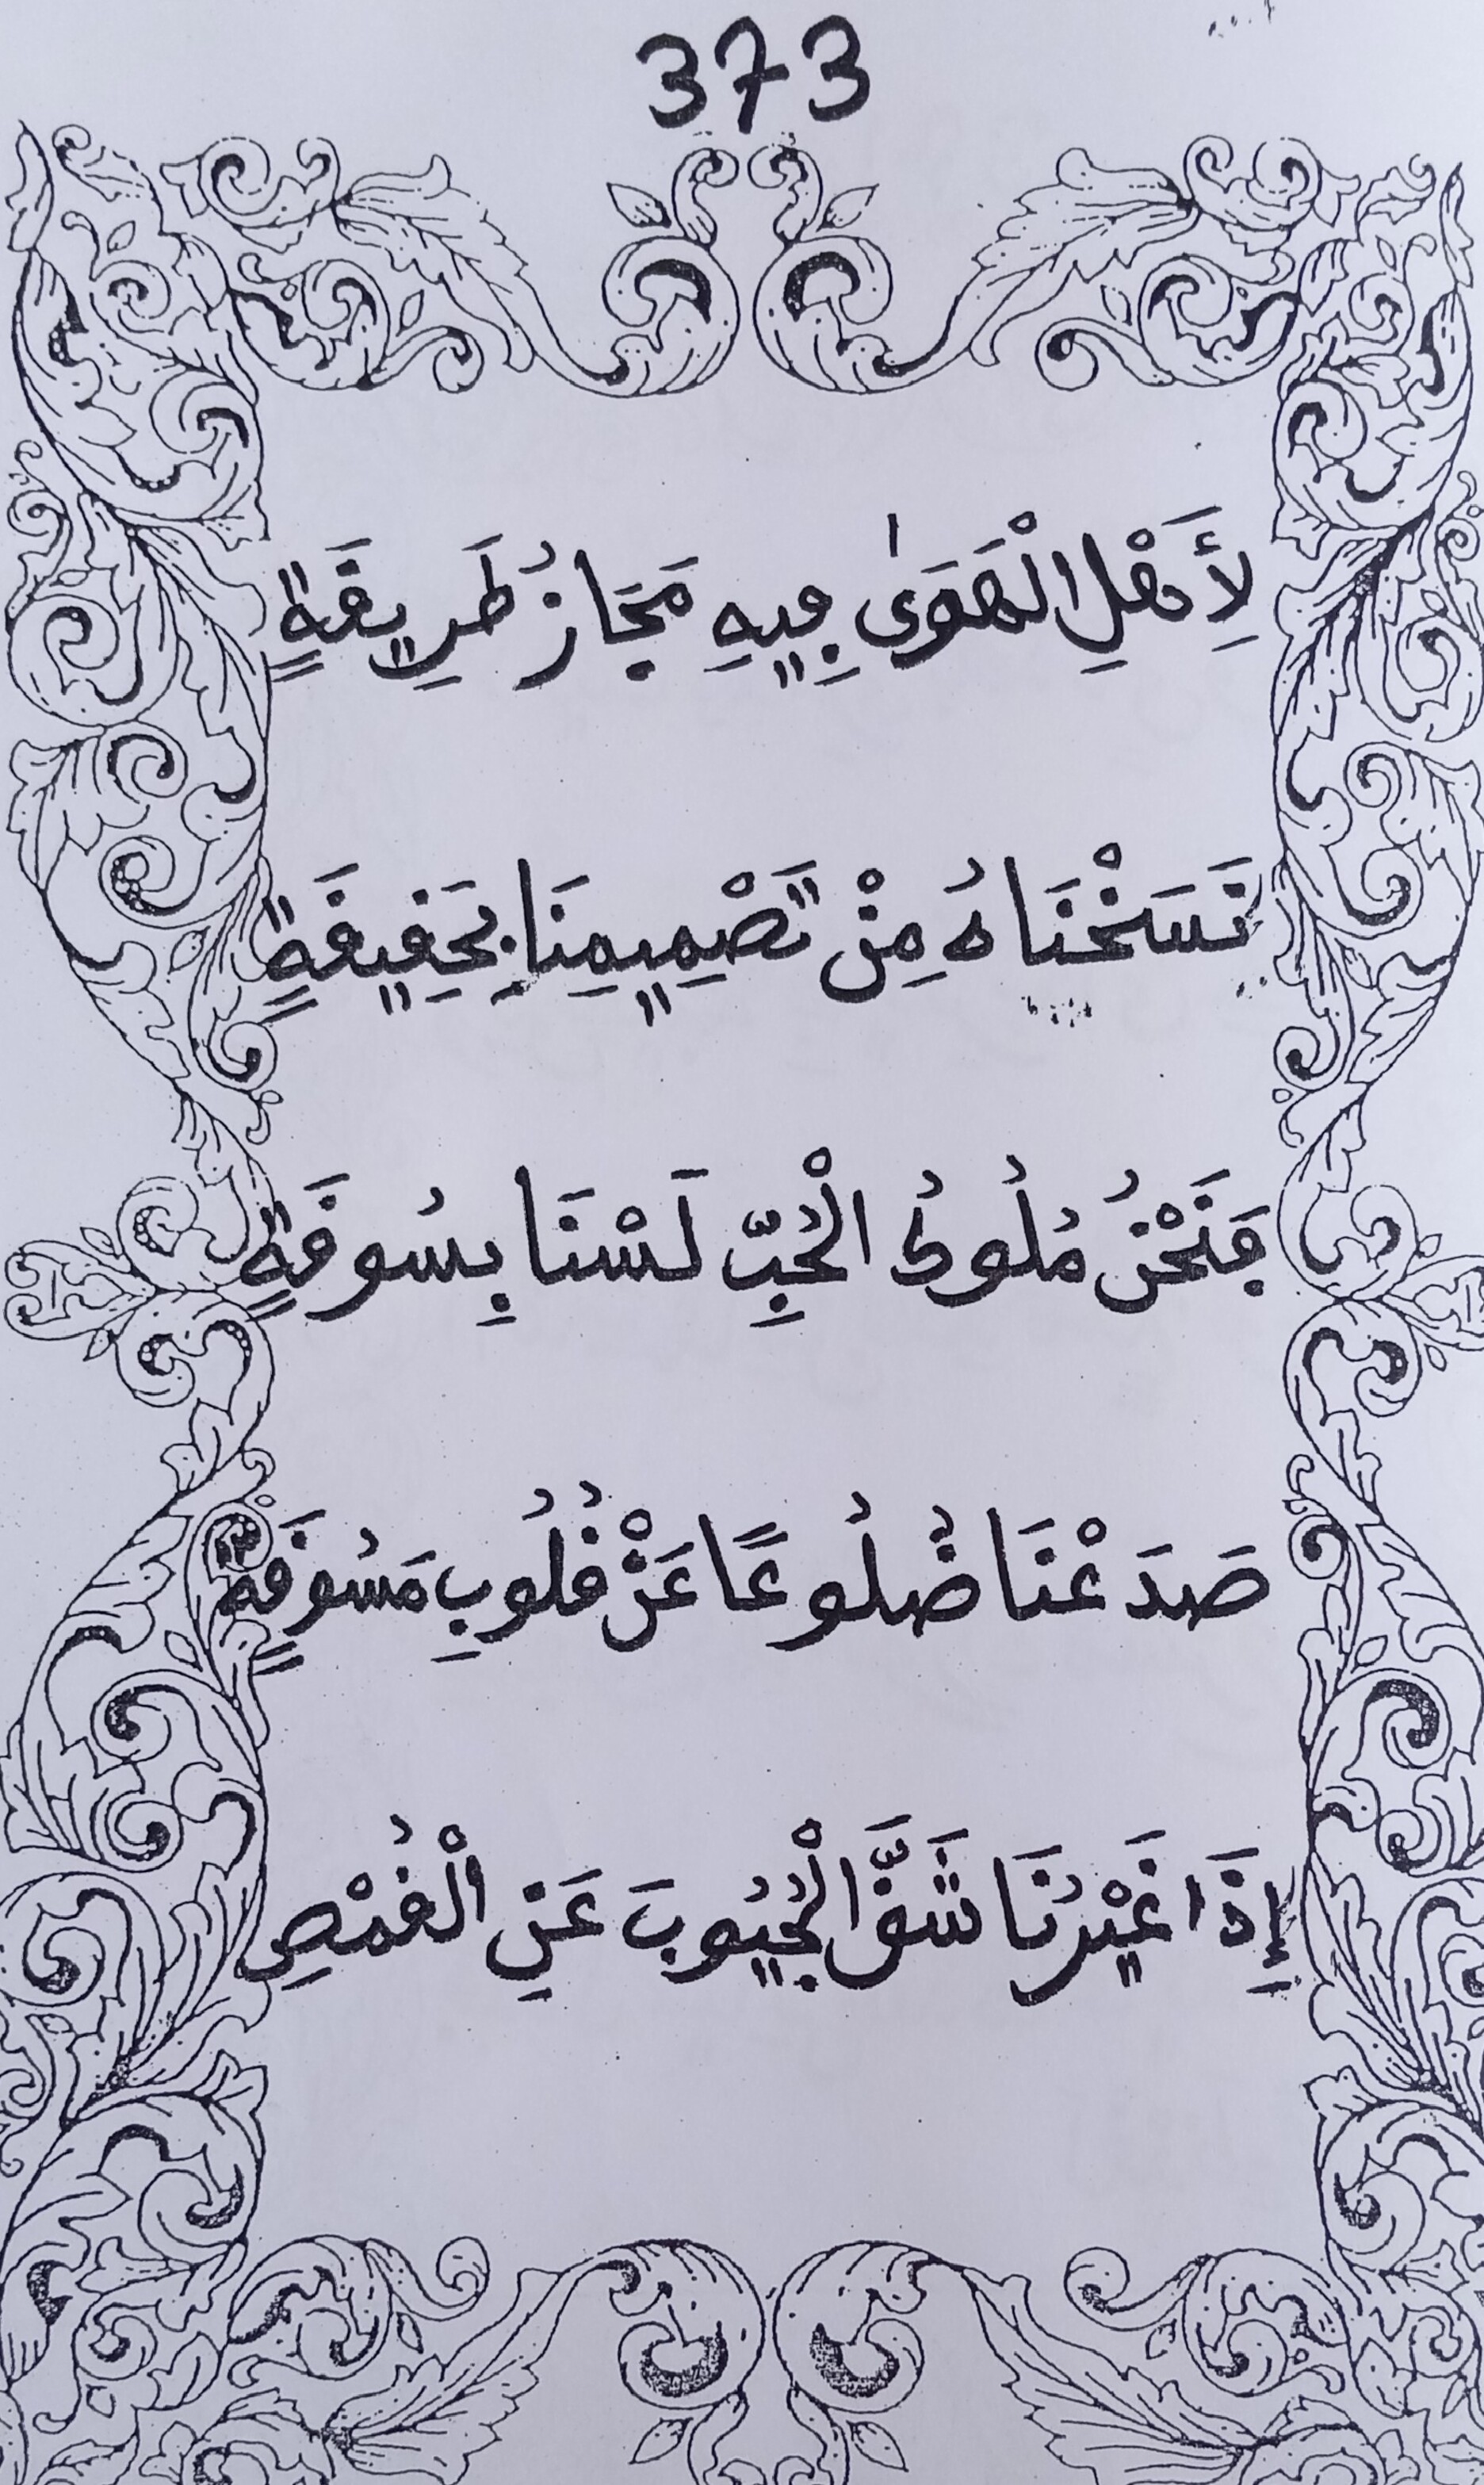 373
لِأَهْلِ الْهَوَىٰ فِيهِ مَجَازُ طَرِيقَةٍ
نَسَخْنَاهُ مِنْ تَصْمِيمِنَا بِحَقِيقَةٍ
فَنَحْنُ مُلُوكُ الْحُبِّ لَسْنَا بِسُوقَةٍ
صَدَعْنَا ضُلُوعًا عَنْ قُلُوبٍ مَسُوقَةٍ
إِذَا غَيْرُنَا شَقَّ الْجُيُوبَ عَنِ الْقُمْصِ